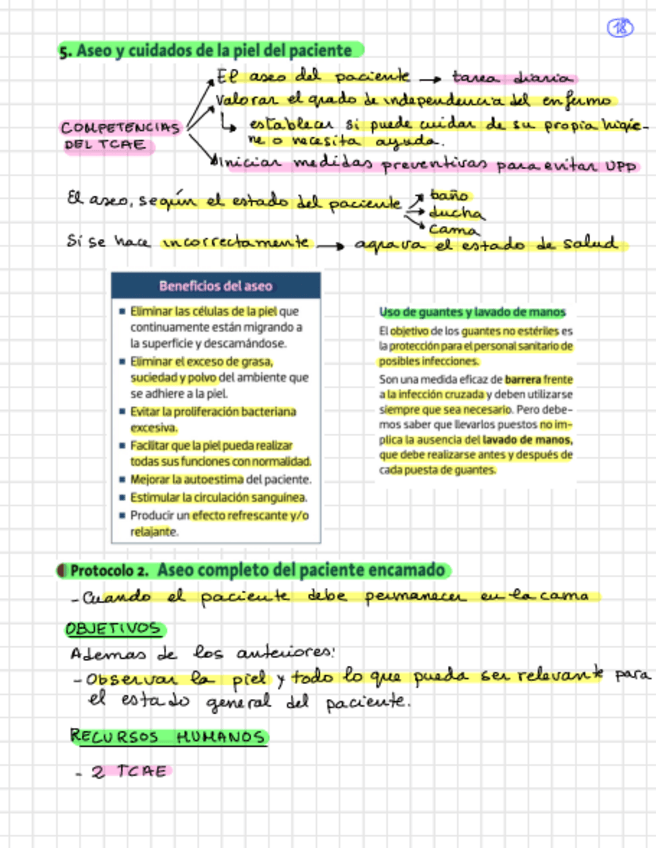 18
5. Aseo y cuidados de la piel del paciente
El aseo del paciente → tarea diaria
Valorar el grado de independencia del enfermo
COMPETENCIAS
DEL TCAE
↳ establecer si puede cuidar de su propia higie-
ne o necesita ayuda.
Iniciar medidas preventivas para evitar UPP
El aseo, según el estado del paciente
baño
ducha
cama
Si se hace incorrectamente → agrava el estado de salud
Beneficios del aseo
Eliminar las células de la piel que
continuamente están migrando a
la superficie y descamándose.
Eliminar el exceso de grasa,
suciedad y polvo del ambiente que
se adhiere a la piel.
Evitar la proliferación bacteriana
excesiva.
Facilitar que la piel pueda realizar
todas sus funciones con normalidad.
Mejorar la autoestima del paciente.
Estimular la circulación sanguínea.
Producir un efecto refrescante y/o
relajante.
Uso de guantes y lavado de manos
El objetivo de los guantes no estériles es
la protección para el personal sanitario de
posibles infecciones.
Son una medida eficaz de barrera frente
a la infección cruzada y deben utilizarse
siempre que sea necesario. Pero debe-
mos saber que llevarlos puestos no im-
plica la ausencia del lavado de manos,
que debe realizarse antes y después de
cada puesta de guantes.
Protocolo 2. Aseo completo del paciente encamado
- Cuando el paciente debe permanecer en la cama
OBJETIVOS
Ademas de los anteriores:
- Observar la piel y todo lo que pueda ser relevante para
el estado general del paciente.
RECURSOS HUMANOS
- 2 TCAE